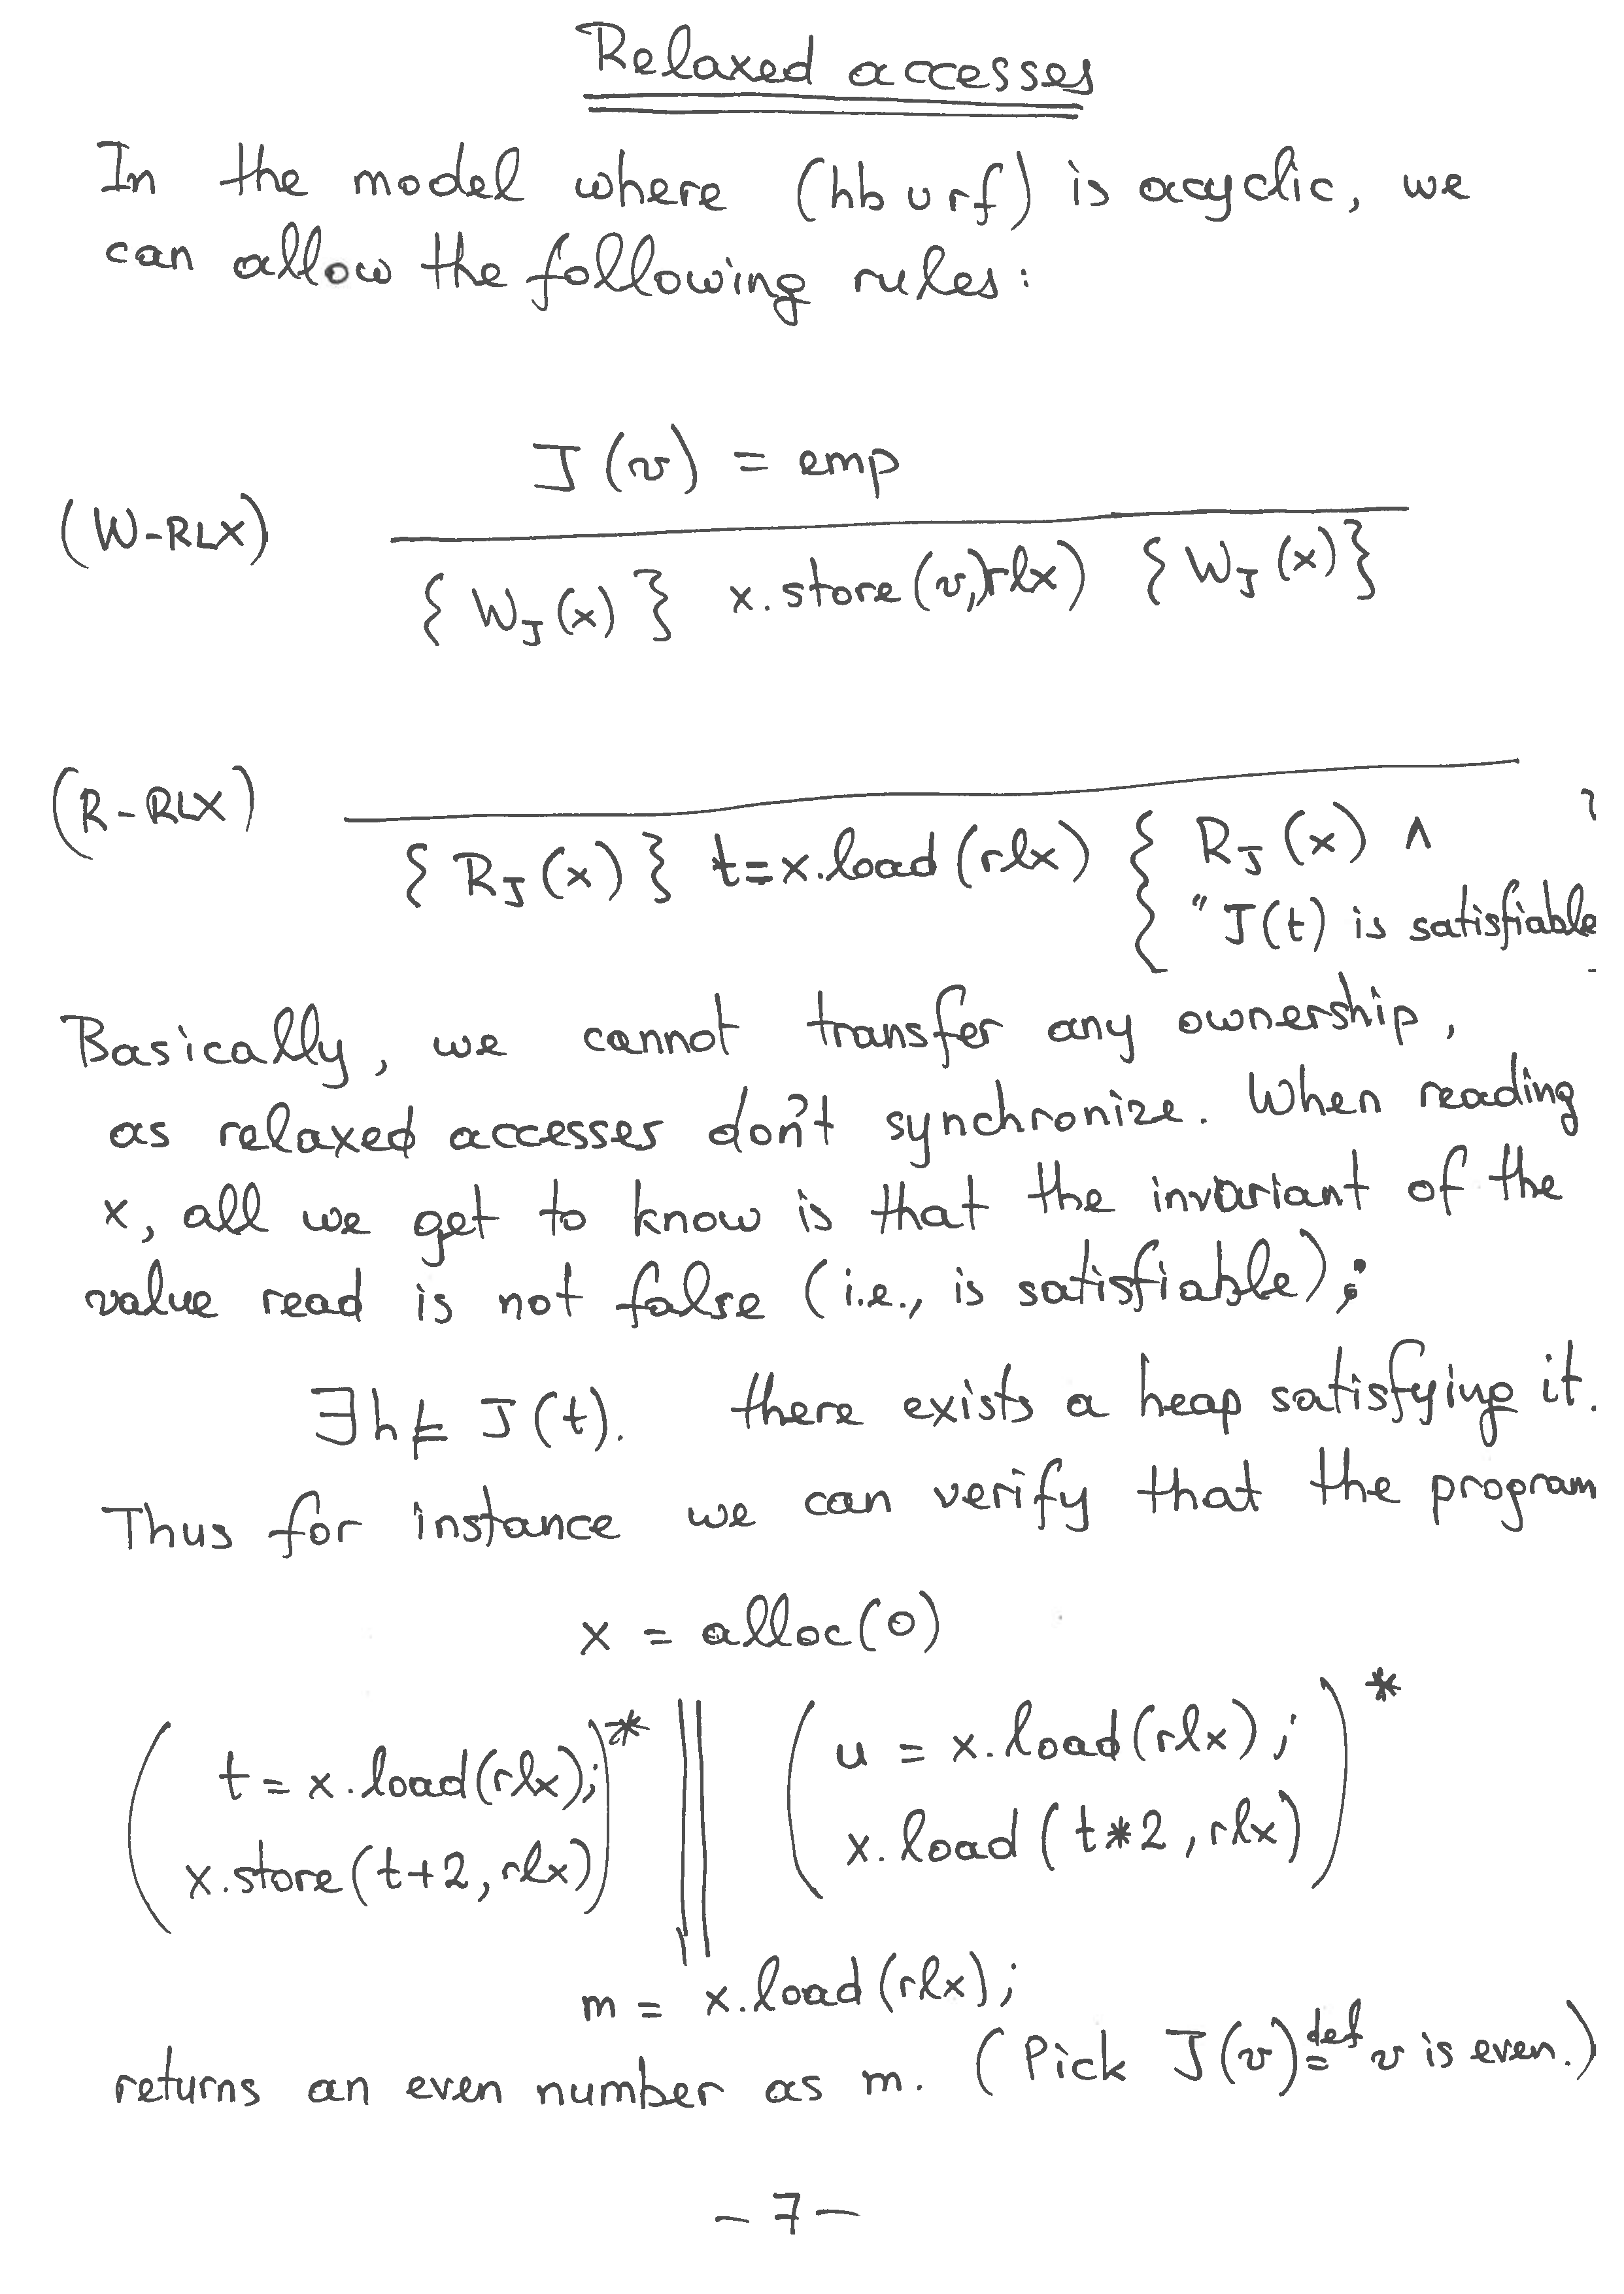 Relaxed accesses
In the model where (hb ∪ rf) is acyclic, we
can allow the following rules:
J(v) = emp
(W-RLX)
{ W_J(x) } x.store(v, rlx) { W_J(x) }
(R-RLX)
{ R_J(x) } t=x.load(rlx) { R_J(x) ∧
"J(t) is satisfiable
Basically, we cannot transfer any ownership,
as relaxed accesses don't synchronize. When reading
x, all we get to know is that the invariant of the
value read is not false (i.e., is satisfiable);
∃h ⊨ J(t). there exists a heap satisfying it.
Thus for instance we can verify that the program
x = alloc(0)
( t = x.load(rlx); )* || ( u = x.load(rlx); )*
x.store(t+2, rlx) x.load(t*2, rlx)
m = x.load(rlx);
returns an even number as m. (Pick J(v) =def v is even.)
-7-